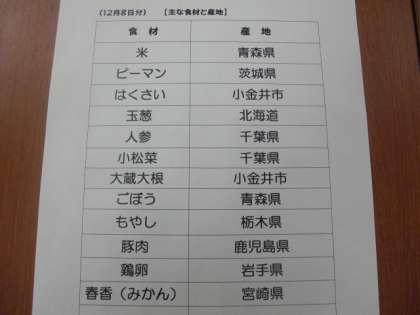 (12月8日分) 【主な食材と産地】
食 材 産 地
米 青森県
ピーマン 茨城県
はくさい 小金井市
玉葱 北海道
人参 千葉県
小松菜 千葉県
大蔵大根 小金井市
ごぼう 青森県
もやし 栃木県
豚肉 鹿児島県
鶏卵 岩手県
春香(みかん) 宮崎県